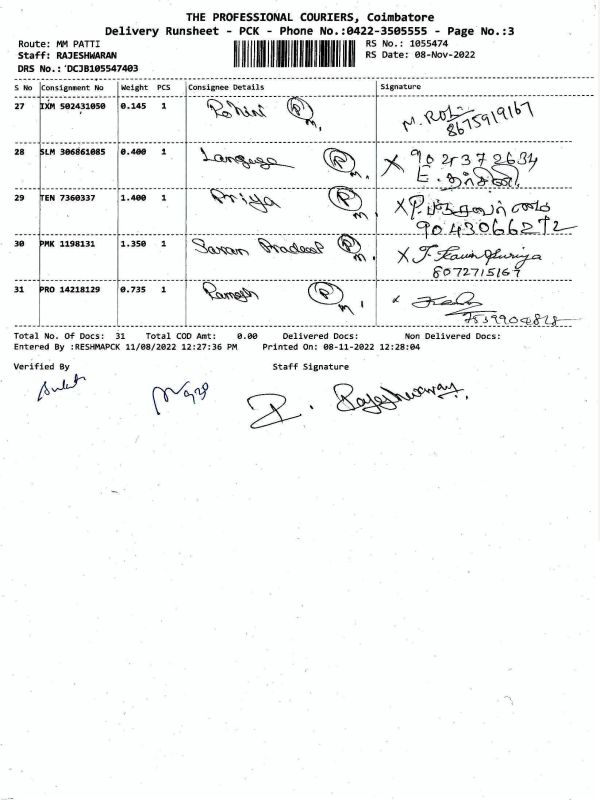 THE PROFESSIONAL COURIERS, Coimbatore
Delivery Runsheet - PCK - Phone No.:0422-3505555 - Page No.:3
Route: MM PATTI RS No.: 1055474
Staff: RAJESHWARAN RS Date: 08-Nov-2022
DRS No.: DCJB105547403
S No Consignment No Weight PCS Consignee Details Signature
27 IXM 502431050 0.145 1 Rohini P M. 8675919167
28 SLM 306861085 0.400 1 Language P M. X 9021372634
E. தர்சினி
29 TEN 7360337 1.400 1 Priya P M. X P.
9043066272
30 PMK 1198131 1.350 1 Saran Pradeesh P M. X
8072715167
31 PRO 14218129 0.735 1 Ramesh P M. x
Total No. Of Docs: 31 Total COD Amt: 0.00 Delivered Docs: Non Delivered Docs:
Entered By :RESHMAPCK 11/08/2022 12:27:36 PM Printed On: 08-11-2022 12:28:04
Verified By Staff Signature
R. Rajeshwaran